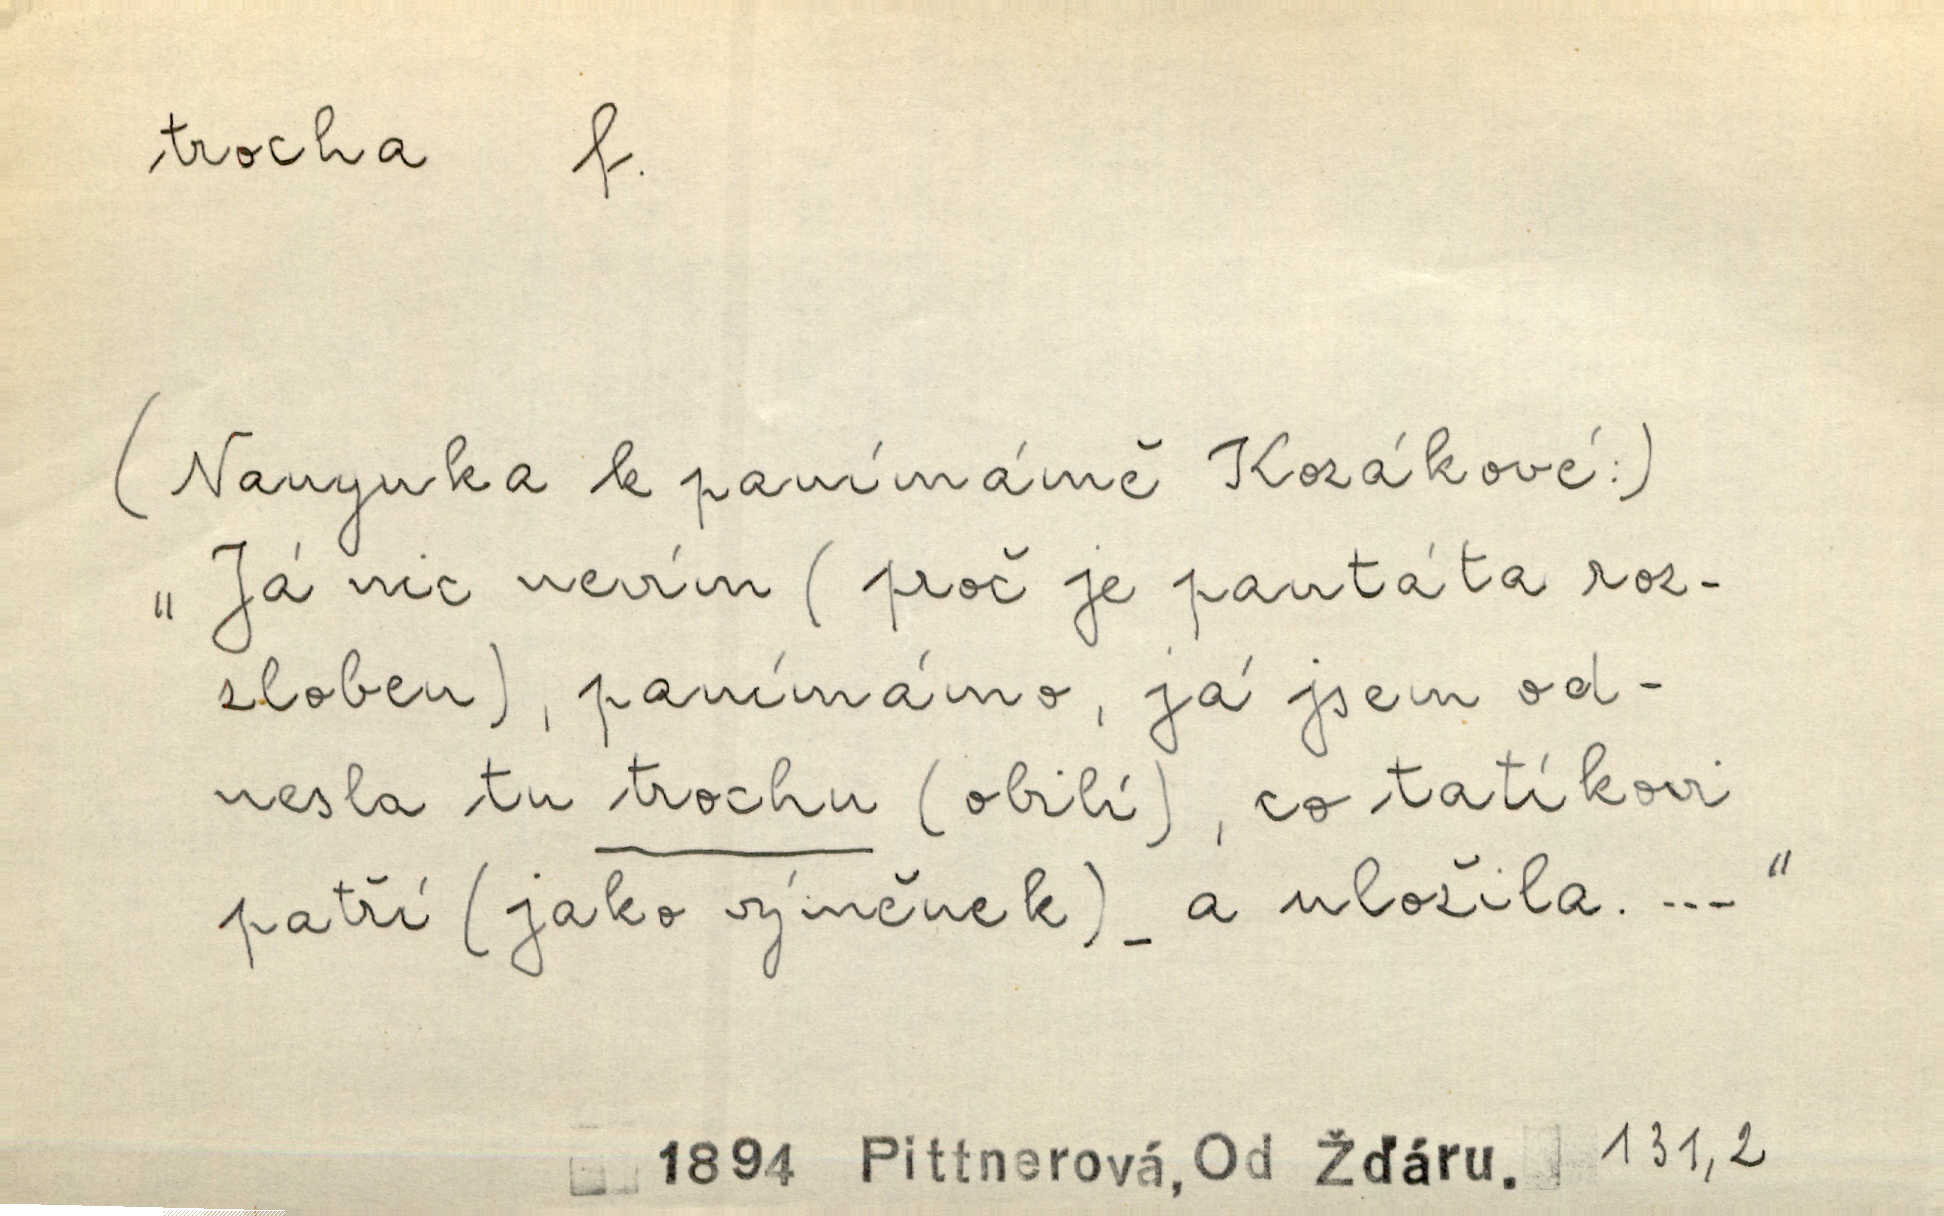 trocha f.
(Nanynka k panímámě Kozákové:)
„Já nic nevím (proč je pantáta roz-
zloben), panímámo, já jsem od-
nesla tu trochu (obilí), co tatíkovi
patří (jako výměnek) – a uložila. ---“
1894 Pittnerová, Od Žďáru. 131,2